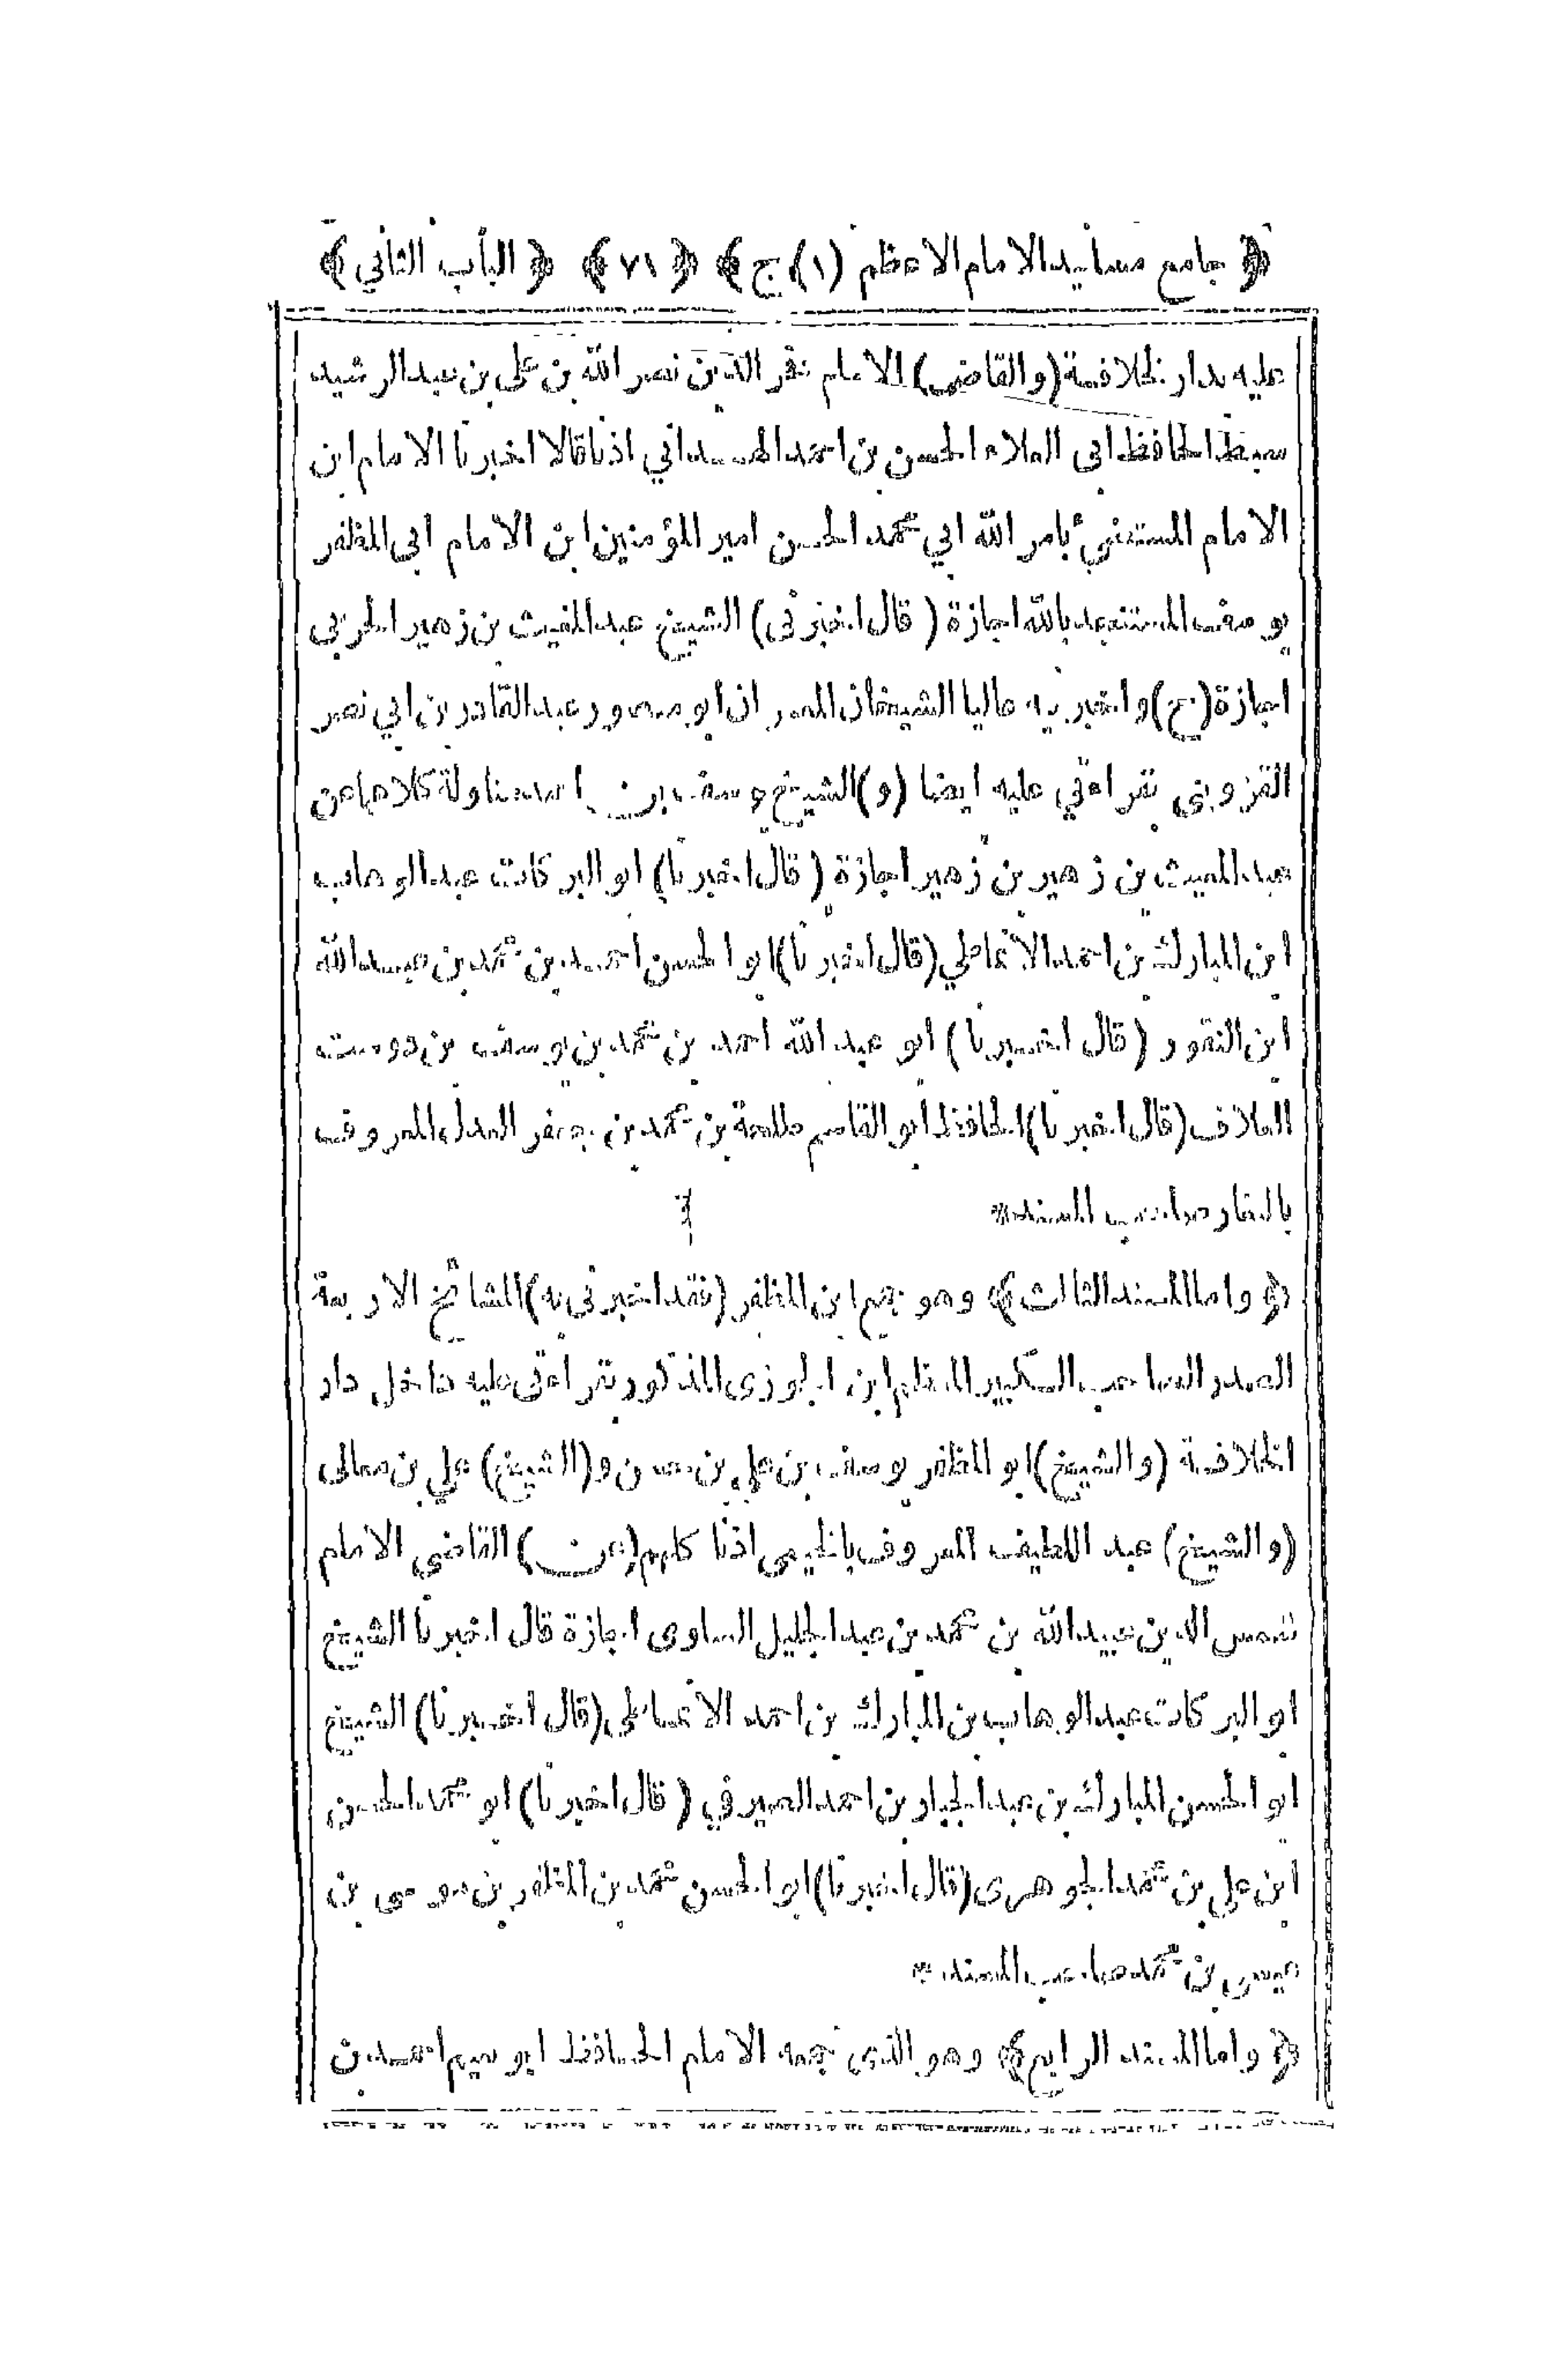 ﴿ جامع مسانيد الامام الاعظم (١) ج ﴾ ﴿ ٧١ ﴾ ﴿ الباب الثاني ﴾
عليه بدار الخلافة (والقاضى) الامام فخر الدين نصر الله بن على بن عبد الرشيد
سبط الحافظ ابى العلاء الحسن بن احمد الهمداني اذنا قالا اخبرنا الامام ابن
الامام المستضيء بامر الله ابي محمد الحسن امير المؤمنين ابن الامام ابى المظفر
يوسف المستنجد بالله اجازة (قال اخبرني) الشيخ عبد المغيث بن زهير الحربي
اجازة (ح) واخبر به عاليا الشيخان المعمران ابو منصور عبد القادر بن ابي نصر
القزويني بقراءتي عليه ايضا (و) الشيخ يوسف بن احمد مناولة كلاهما عن
عبد المغيث بن زهير بن زهير اجازة (قال اخبرنا) ابو البركات عبد الوهاب
ابن المبارك بن احمد الانماطي (قال اخبرنا) ابو الحسن احمد بن محمد بن عبيد الله
ابن النقور (قال اخبرنا) ابو عبد الله احمد بن محمد بن يوسف بن دوست
العلاف (قال اخبرنا) الحافظ ابو القاسم طلحة بن محمد بن جعفر العدل المعروف
بالنقار صاحب المسند*
﴿ واما المسند الثالث ﴾ وهو جمع ابن المظفر (فقد اخبرنى به) المشائخ الاربعة
الصدر الصاحب الكبير المعظم ابن الجوزى المذكور بقراءتى عليه داخل دار
الخلافة (والشيخ) ابو المظفر يوسف بن علي بن حسن و (الشيخ) علي بن معالى
(والشيخ) عبد اللطيف المعروف بالخيمى اذنا كلهم (عن) القاضي الامام
شمس الدين عبيد الله بن محمد بن عبد الجليل الساوى اجازة قال اخبرنا الشيخ
ابو البركات عبد الوهاب بن المبارك بن احمد الانماطى (قال اخبرنا) الشيخ
ابو الحسن المبارك بن عبد الجبار بن احمد الصيرفي (قال اخبرنا) ابو محمد الحسن
ابن علي بن محمد الجوهرى (قال اخبرنا) ابو الحسن محمد بن المظفر بن موسى بن
عيسى بن محمد صاحب المسند *
﴿ واما المسند الرابع ﴾ وهو الذى جمعه الامام الحافظ ابو نعيم احمد بن